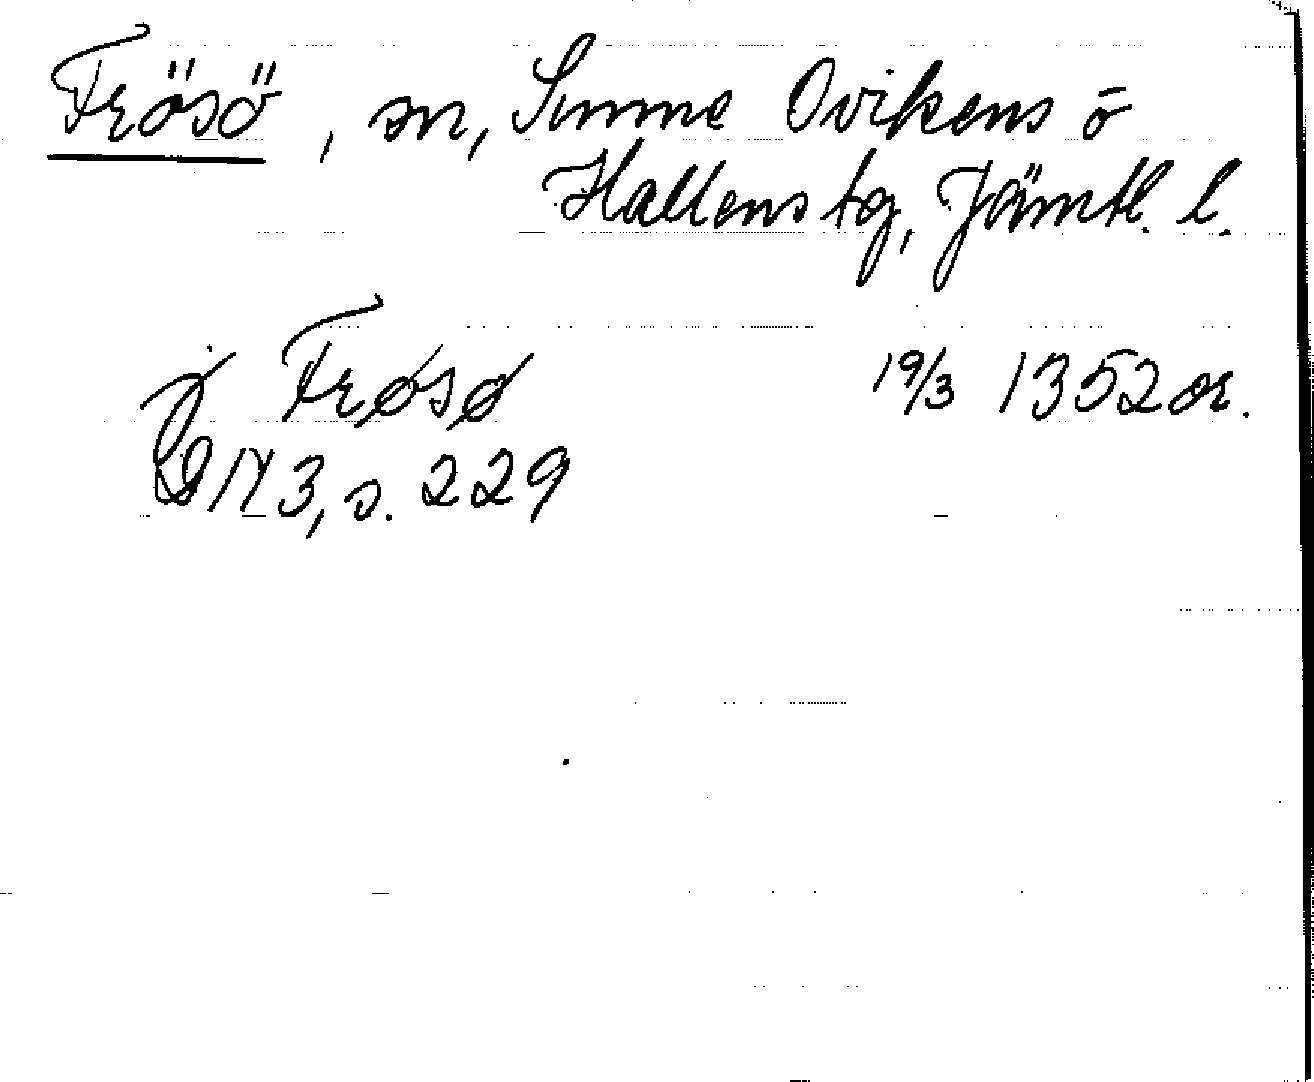 Frösö, sn, Sunne Ovikens o
Hallens tg, Jämtl. l.
j Frøsø 19/3 1352 or.
DN 3, s. 229